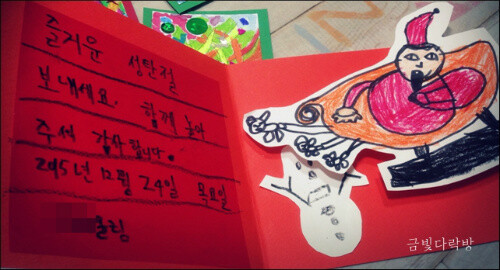 즐거운 성탄절
보내세요. 함께 놀아
주셔 감사합니다.
2015년 12월 24일 목요일
올림
금빛다락방